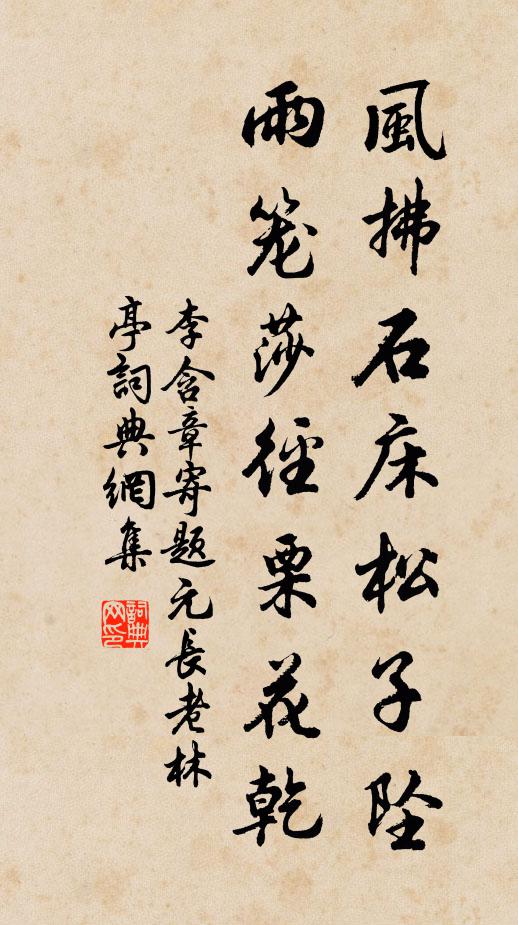 風拂石床松子坠
雨笼莎徑栗花乾
李含章寄題元長老林
亭詞典網集
詞典网印